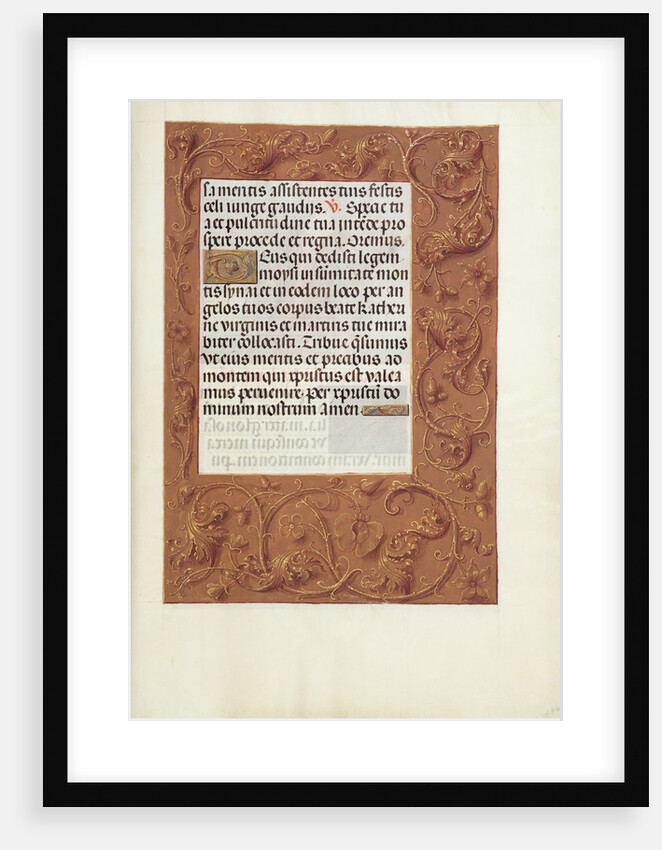 sa mentis assistentes tuis festis
celi iunge gaudiis. V. Specie tu
a et pulcritudine tua intēde pro
spere procede et regna. Oremus.
Deus qui dedisti legem
moysi in sūmitate mon
tis synai et in eodem loco per an
gelos tuos corpus beate katheri
ne virginis et martiris tue mira
biliter collocasti. Tribue q̄sumus
vt eius mentis et precibus ad
montem qui xpristus est valea
mus peruenire. per xpristū do
minum nostrum amen